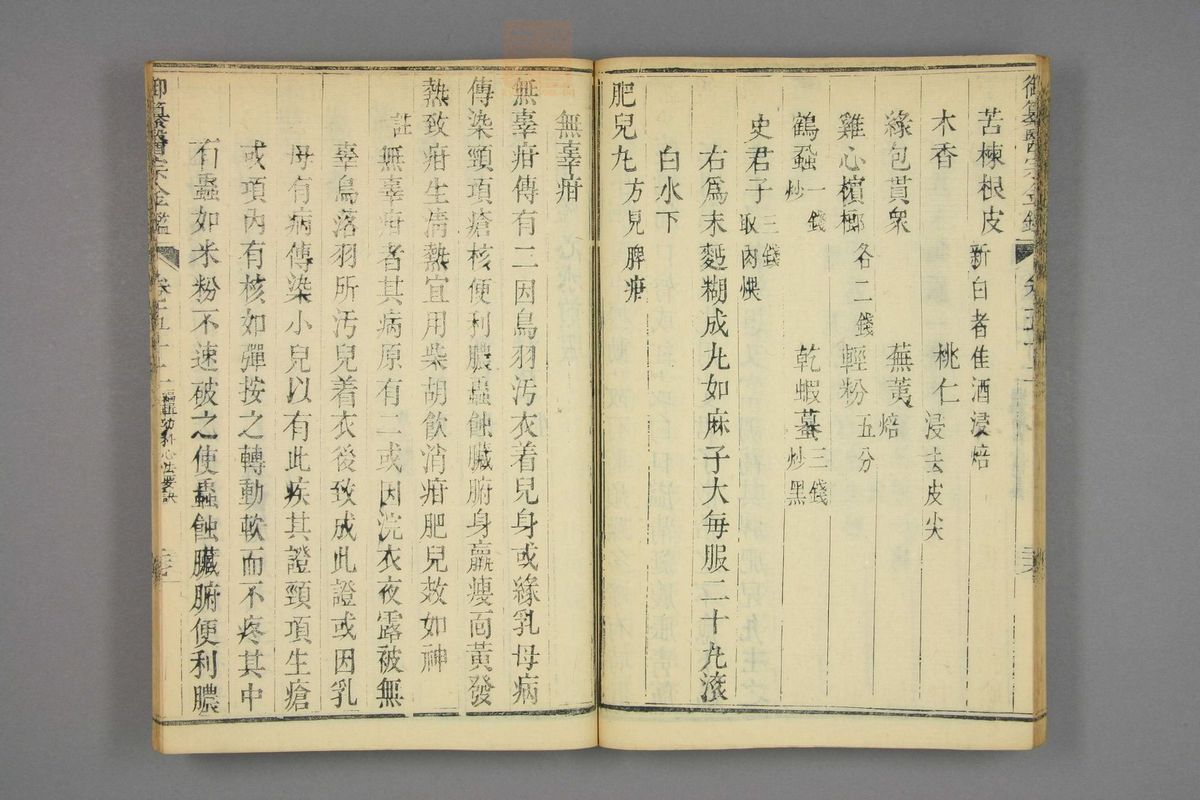 苦楝根皮 新白者佳酒浸焙
木香 桃仁 浸去皮尖
綠包貫衆 蕪荑 焙
雞心檳榔 各二錢 輕粉 五分
鶴蝨 一錢炒 乾蝦蟇 三錢炒黑
史君子 三錢取肉煨
右爲末麪糊成九如麻子大每服二十九滚
白水下
肥兒九 方見脾疳
無辜疳
無辜疳傳有二因鳥羽汚衣着兒身或緣乳母病
傳染頸項瘡核便利膿蟲蝕臟腑身羸瘦面黃發
熱致疳生淸熱宜用柴胡飲消疳肥兒效如神
註 無辜疳者其病原有二或因浣衣夜露被無
辜鳥落羽所汚兒着衣後致成此證或因乳
母有病傳染小兒以有此疾其證頸項生瘡
或項內有核如彈按之轉動軟而不疼其中
有蟲如米粉不速破之使蟲蝕臟腑便利膿
御纂醫宗金鑑 卷之五十二 編輯幼科心法要訣